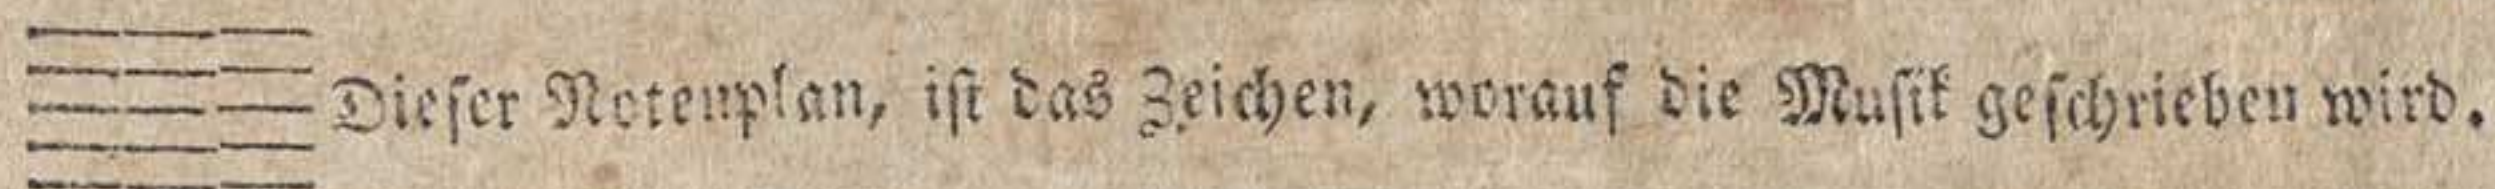 Dieſer Notenplan, iſt das Zeichen, worauf die Muſik geſchrieben wird.